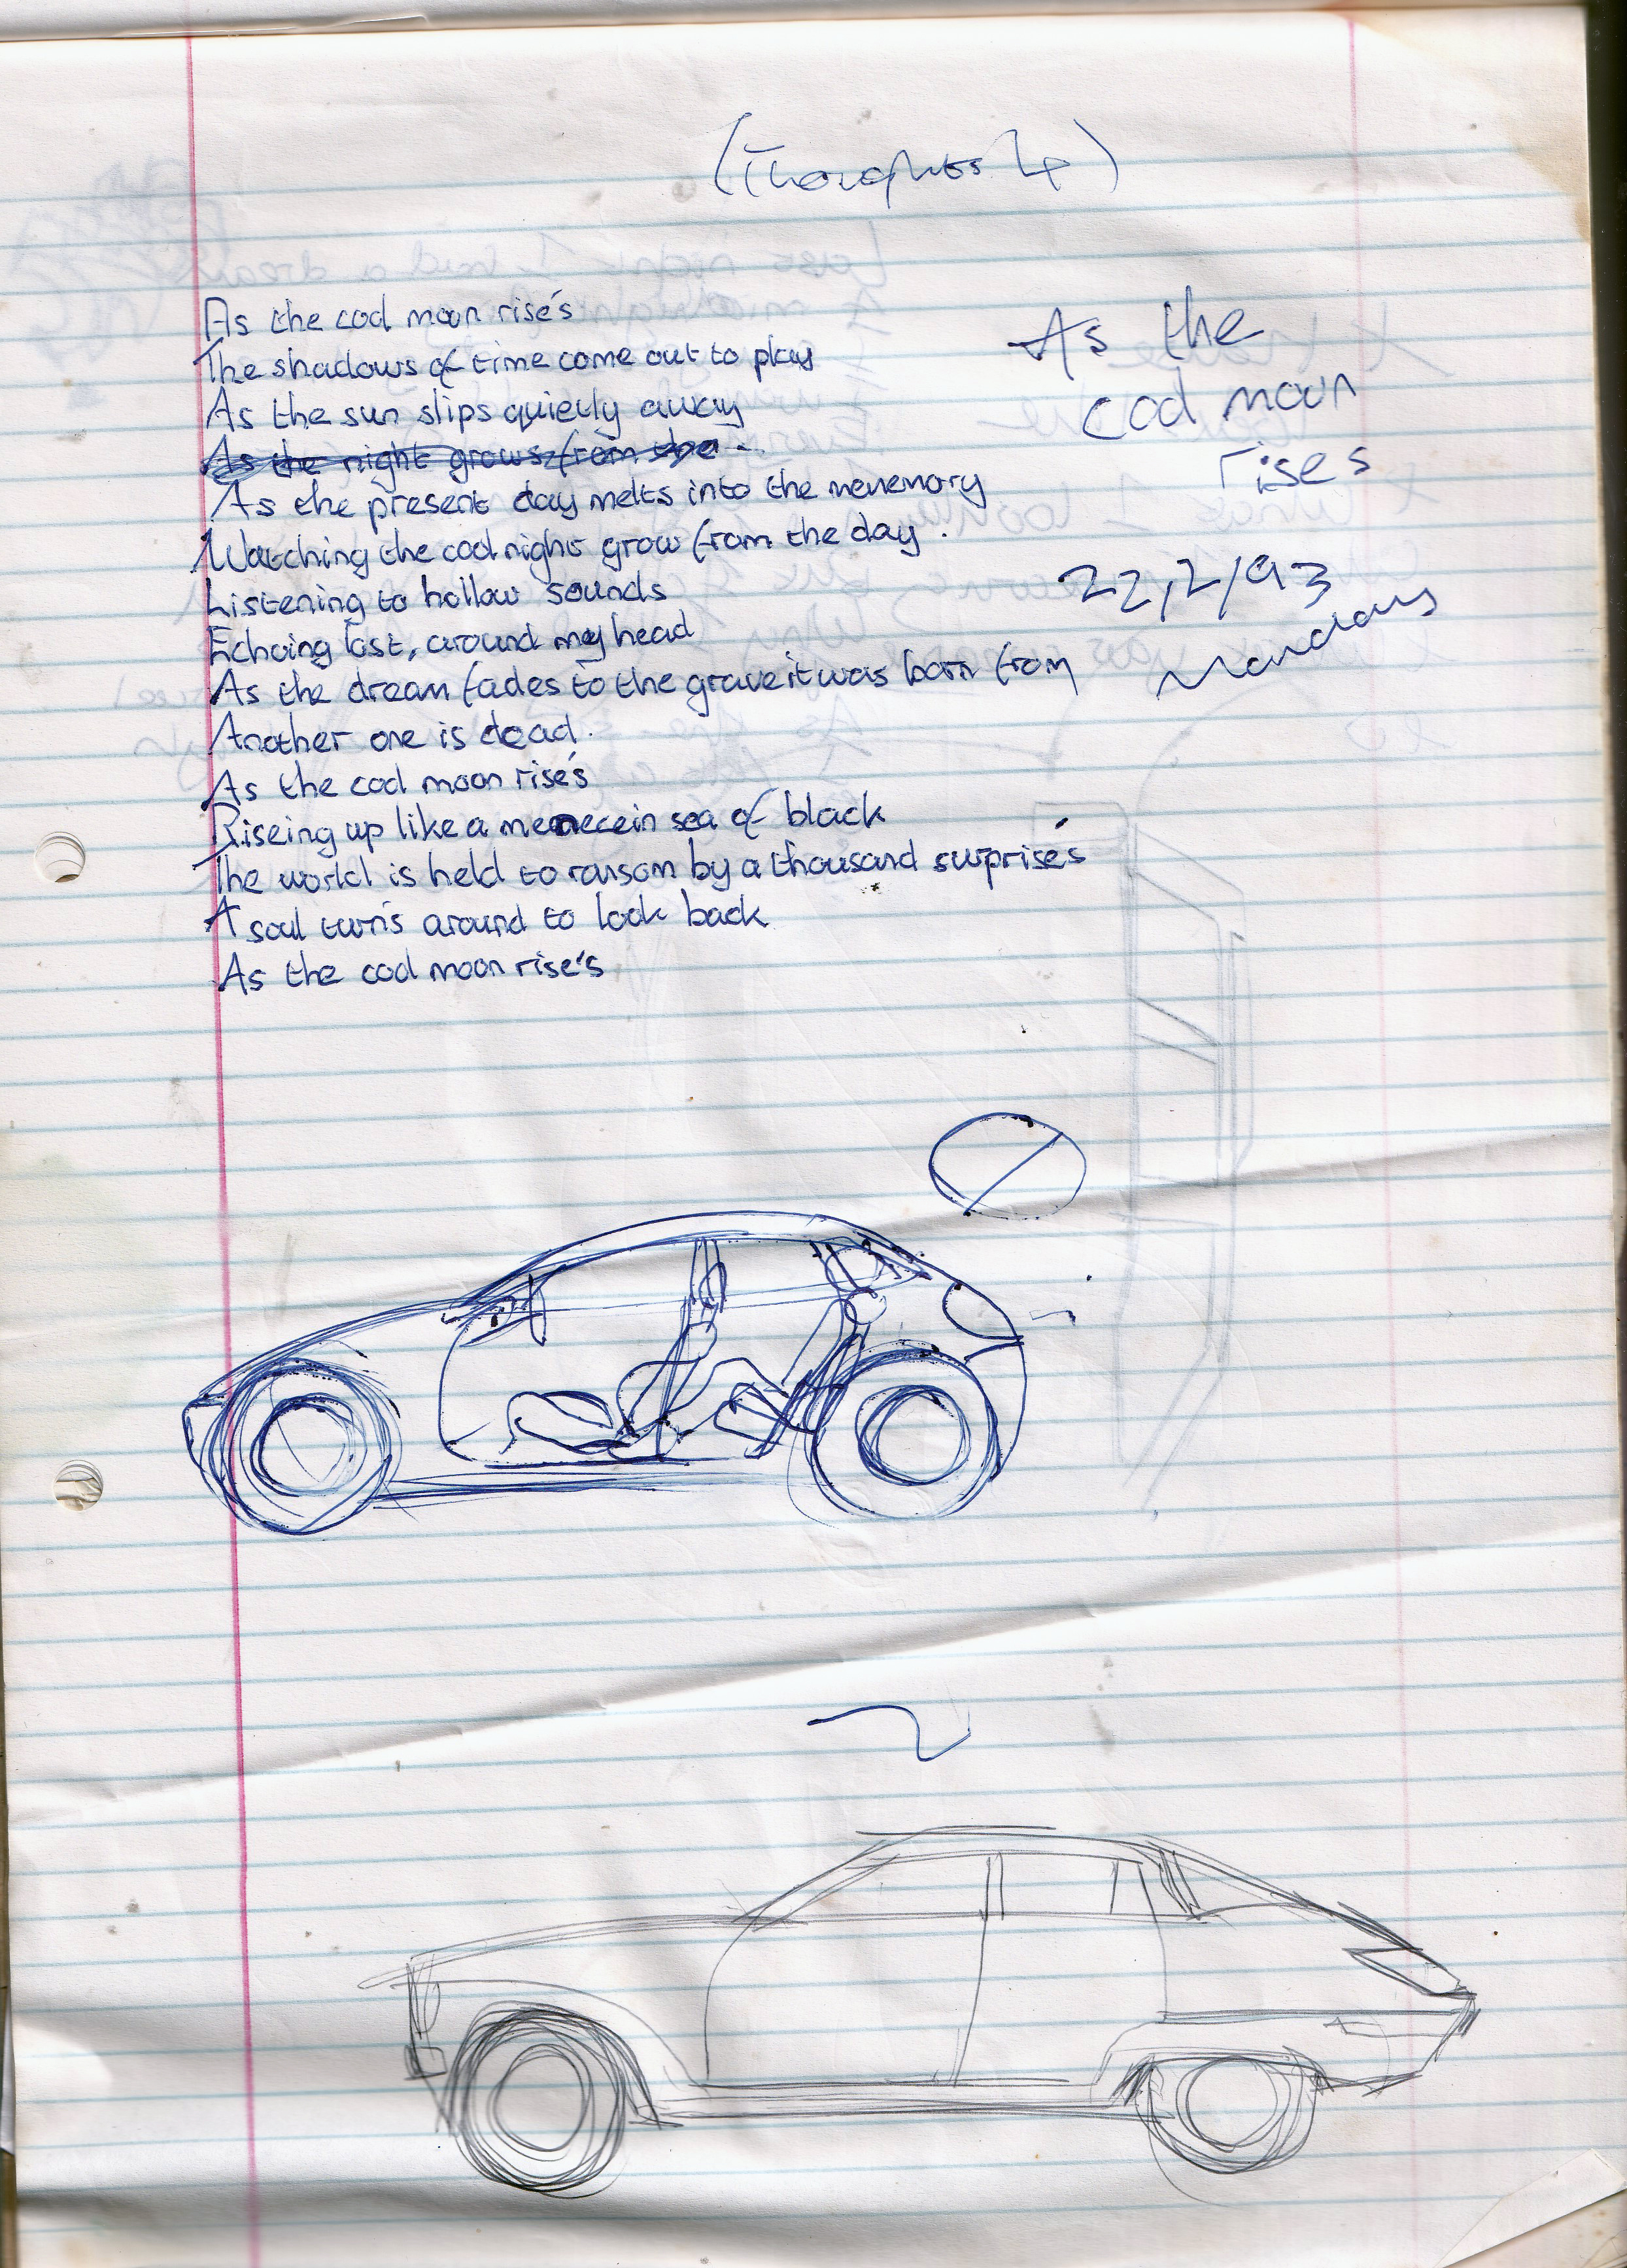 (Thoughts 4)
As the cod moon rise's
The shadows of time come out to play
As the sun slips quietly away
As the night grows from the
As the present day melts into the menemory
Watching the cod night grow from the day.
Listening to hollow sounds
Echoing lost, around my head
As the dream fades to the grave it was born from
Another one is dead.
As the cod moon rise's
Riseing up like a menecein sea of black
The world is held to ransom by a thousand surprise's
A soul turn's around to look back
As the cod moon rise's
As the
cod moon
rises
22,2/93
Monday